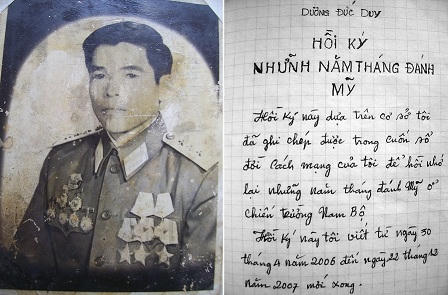 DƯƠNG ĐỨC DUY
HỒI KÝ
NHỮNG NĂM THÁNG ĐÁNH
MỸ
Hồi Ký này dựa trên cơ sở tôi
đã ghi chép được trong cuốn sổ
đời Cách mạng của tôi để hồi nhớ
lại những năm tháng đánh Mỹ ở
chiến trường Nam Bộ
Hồi Ký này tôi viết từ ngày 30
tháng 4 năm 2006 đến ngày 22 tháng 12
năm 2007 mới xong.